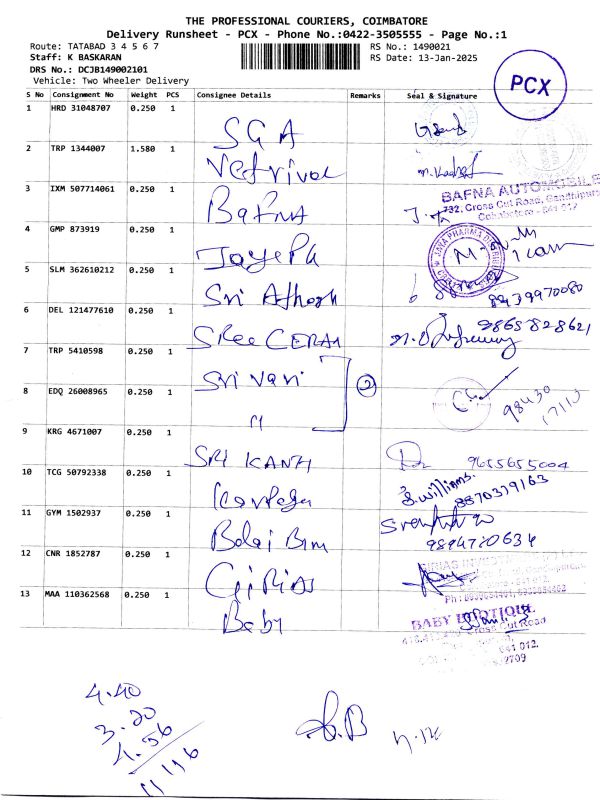 THE PROFESSIONAL COURIERS, COIMBATORE
Delivery Runsheet - PCX - Phone No.:0422-3505555 - Page No.:1
Route: TATABAD 3 4 5 6 7
RS No.: 1490021
Staff: K BASKARAN
RS Date: 13-Jan-2025
DRS No.: DCJB149002101
Vehicle: Two Wheeler Delivery
PCX
S No Consignment No Weight PCS Consignee Details Remarks Seal & Signature
1 HRD 31048707 0.250 1 SGA
2 TRP 1344007 1.580 1 Vetrivel
3 IXM 507714061 0.250 1 BaFNA
BAFNA AUTOMOBILE
732, Cross Cut Road, Gandhipura
Coimbatore - 641 012
4 GMP 873919 0.250 1 Joyeph
5 SLM 362610212 0.250 1 Sri Athosh
8939970080
6 DEL 121477610 0.250 1 SRee CERAM
9865828621
7 TRP 5410598 0.250 1 Sri Vari
2
8 EDQ 26008965 0.250 1 "
98430
17113
9 KRG 4671007 0.250 1 SRI KANH 9655655004
10 TCG 50792338 0.250 1
S.williams.
8870379163
11 GYM 1502937 0.250 1 Balaji Bim
9894720634
12 CNR 1852787 0.250 1 GiRias
13 MAA 110362568 0.250 1 Baby
BABY BOUTIQUE
Cross Cut Road
641 012.
4.40
3.20
4.56
11 116